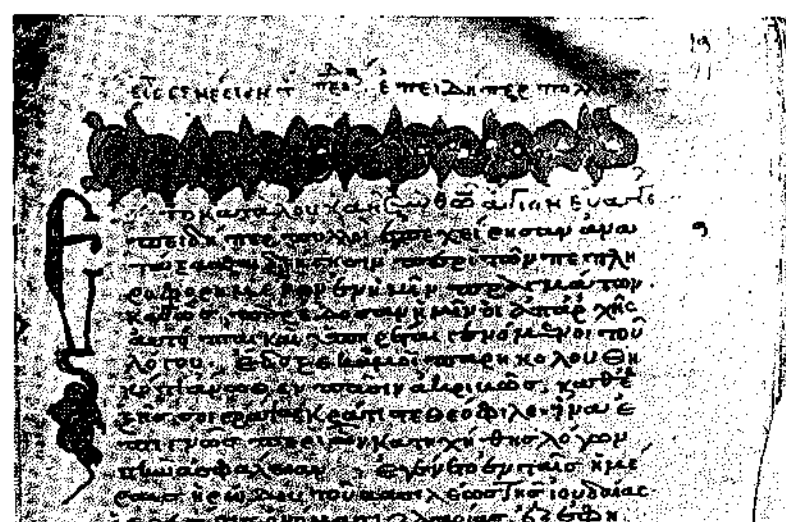 ἐπειδήπερ πολ
τὸ κατὰ λουκᾶν ἅγιον εὐαγγ
πειδήπερ πολλοὶ ἐπεχείρησαν ἀνα
τάξασθαι διήγησιν περὶ τῶν πεπλη
ροφορημένων ἐν ἡμῖν πραγμάτων.
καθὼς παρέδοσαν ἡμῖν οἱ ἀπαρχῆς
αὐτόπται καὶ ὑπηρέται γενόμενοι τοῦ
λόγου. ἔδοξε κἀμοὶ παρηκολουθη
κότι ἄνωθεν πᾶσιν ἀκριβῶς, καθε
ξῆς σοι γράψαι κράτιστε θεόφιλε ἵνα ἐ
πιγνῶς περὶ ὧν κατηχήθης λόγων
τὴν ἀσφάλειαν ἐγένετο ἐν ταῖς ἡμέ
ραις ἡρώδου τοῦ βασιλέως τῆς ἰουδαίας